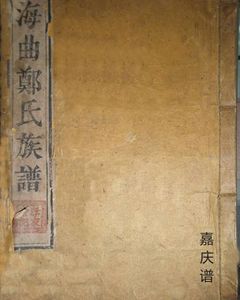 海曲鄭氏族譜
嘉庆谱